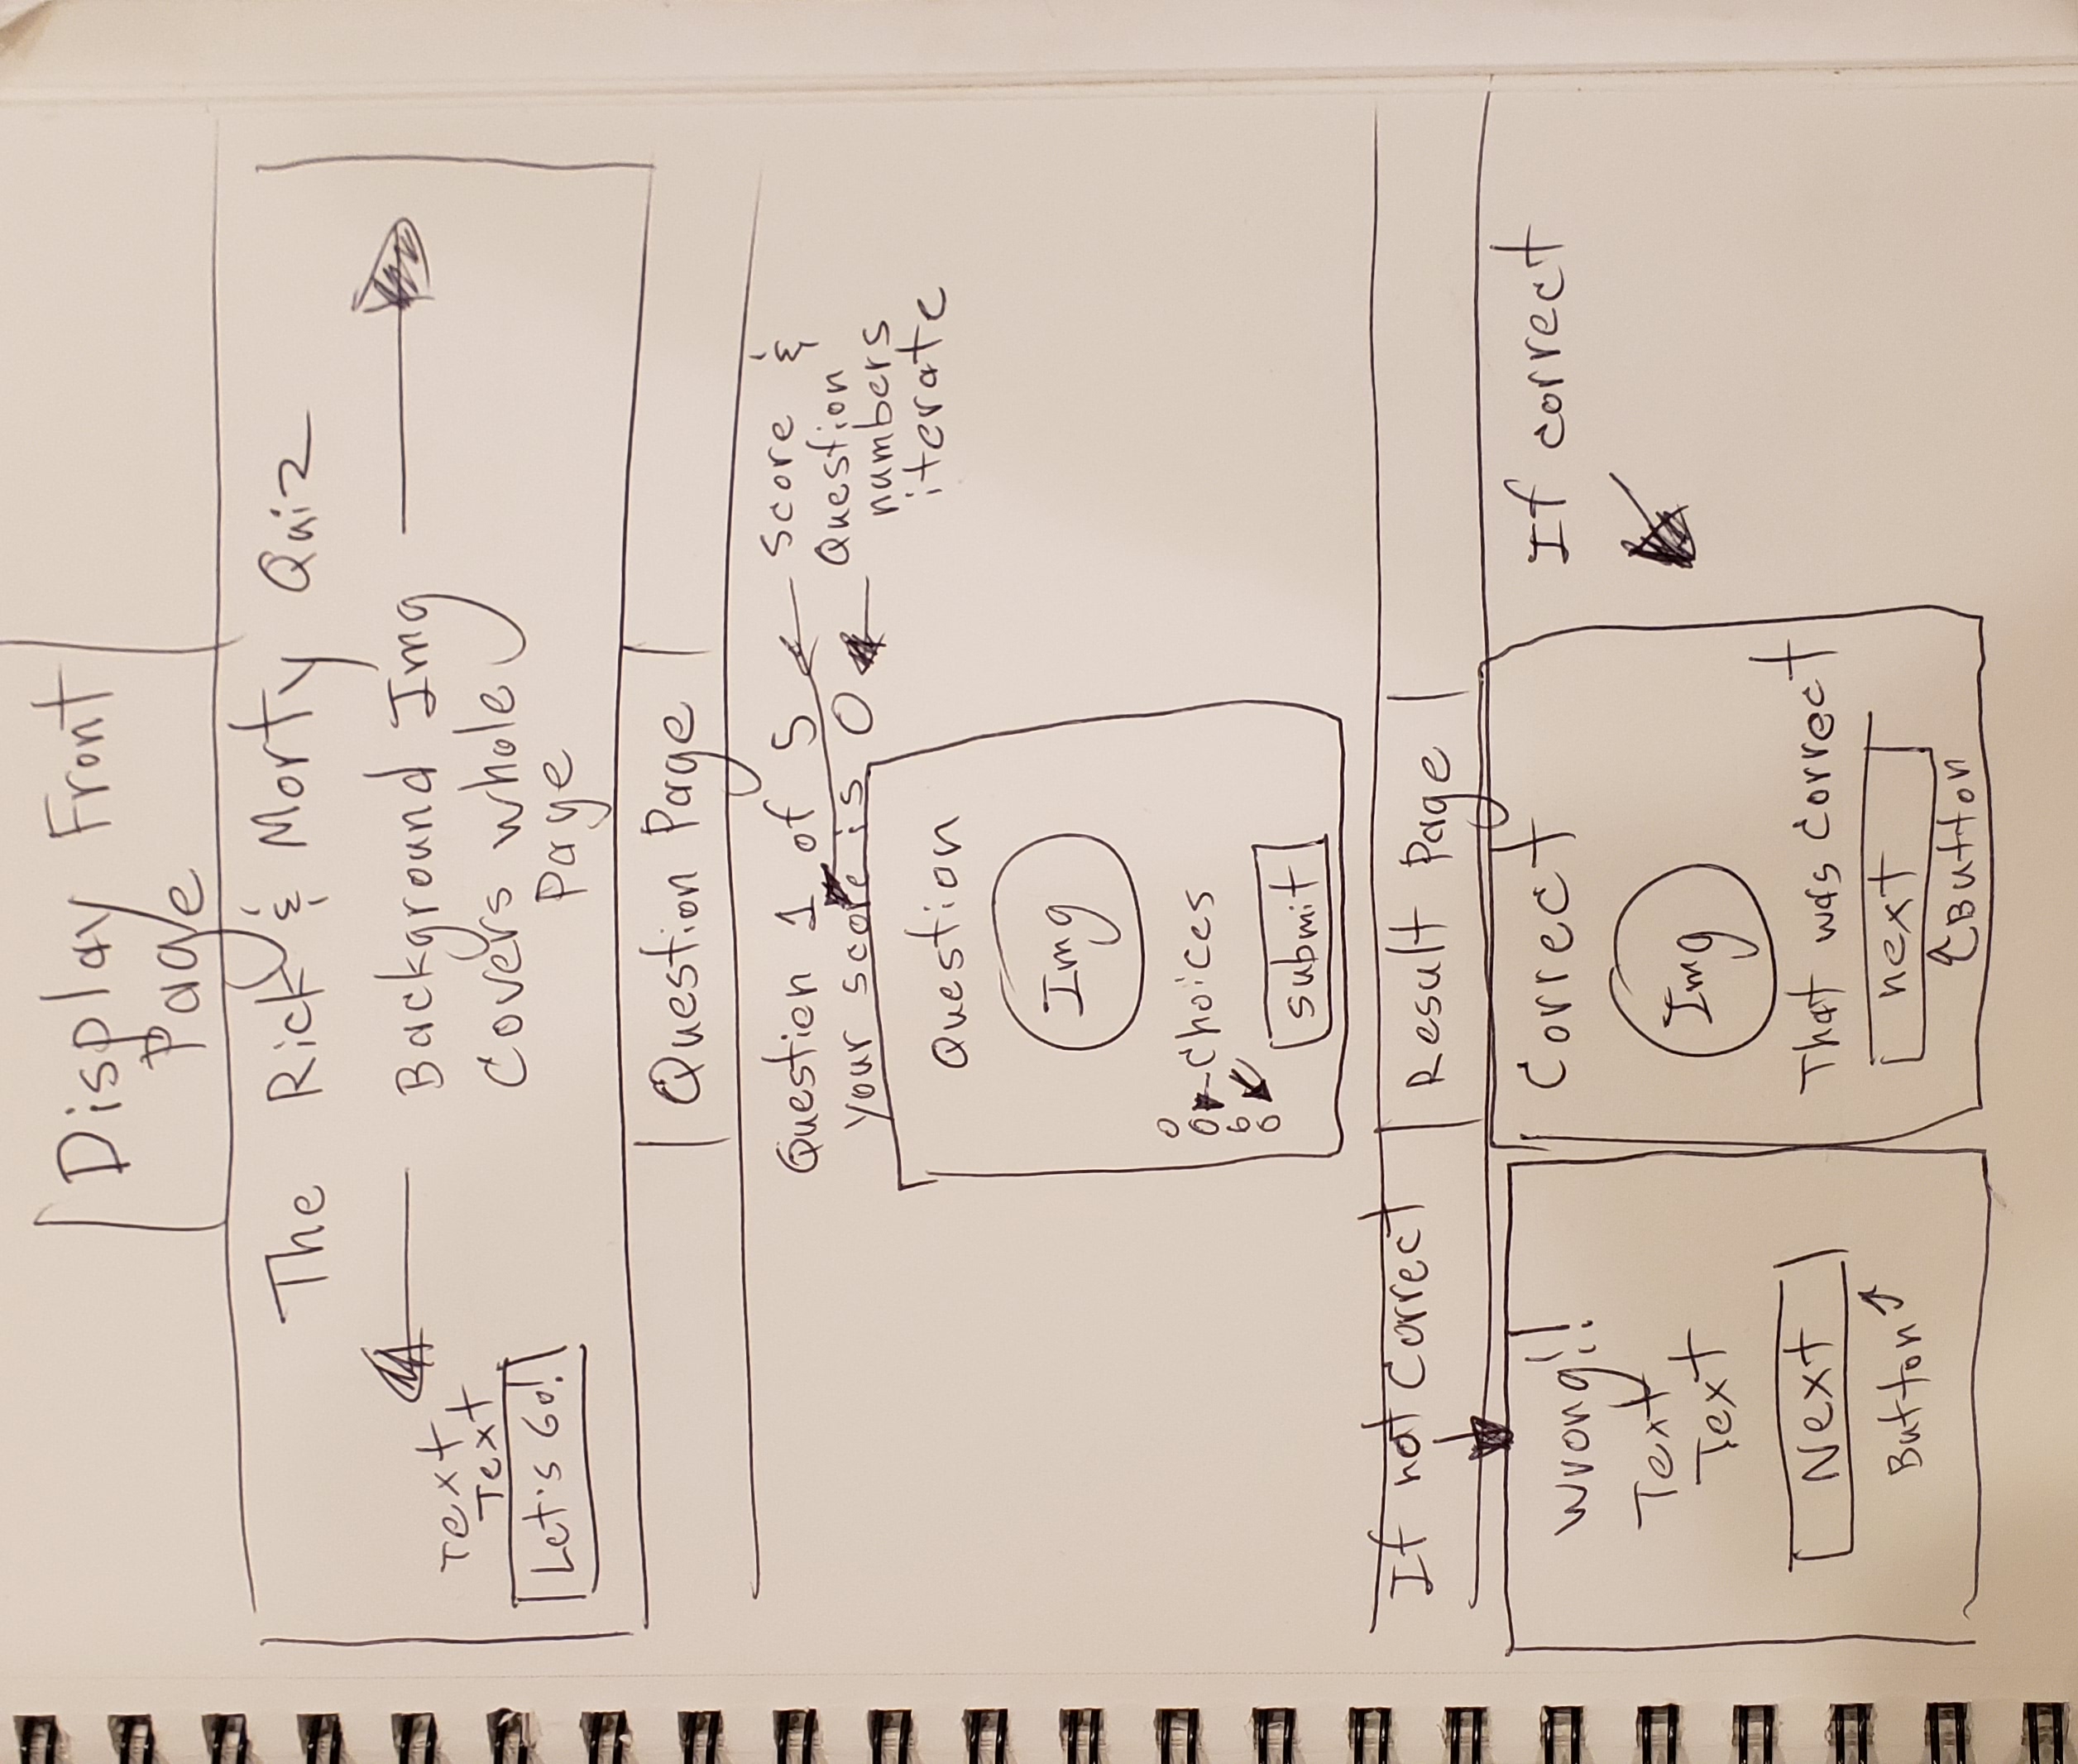 Display Front
Page
The Rick & Morty Quiz
Background Img
Covers whole
Page
Text
Text
Let's Go!
Question Page
Question 1 of 5
your score is 0
Score &
Question
numbers
iterate
Question
Img
Choices
submit
If not Correct
Result Page
Wrong!!
Text
Text
Next
Button
Correct
Img
That was Correct
next
Button
If correct